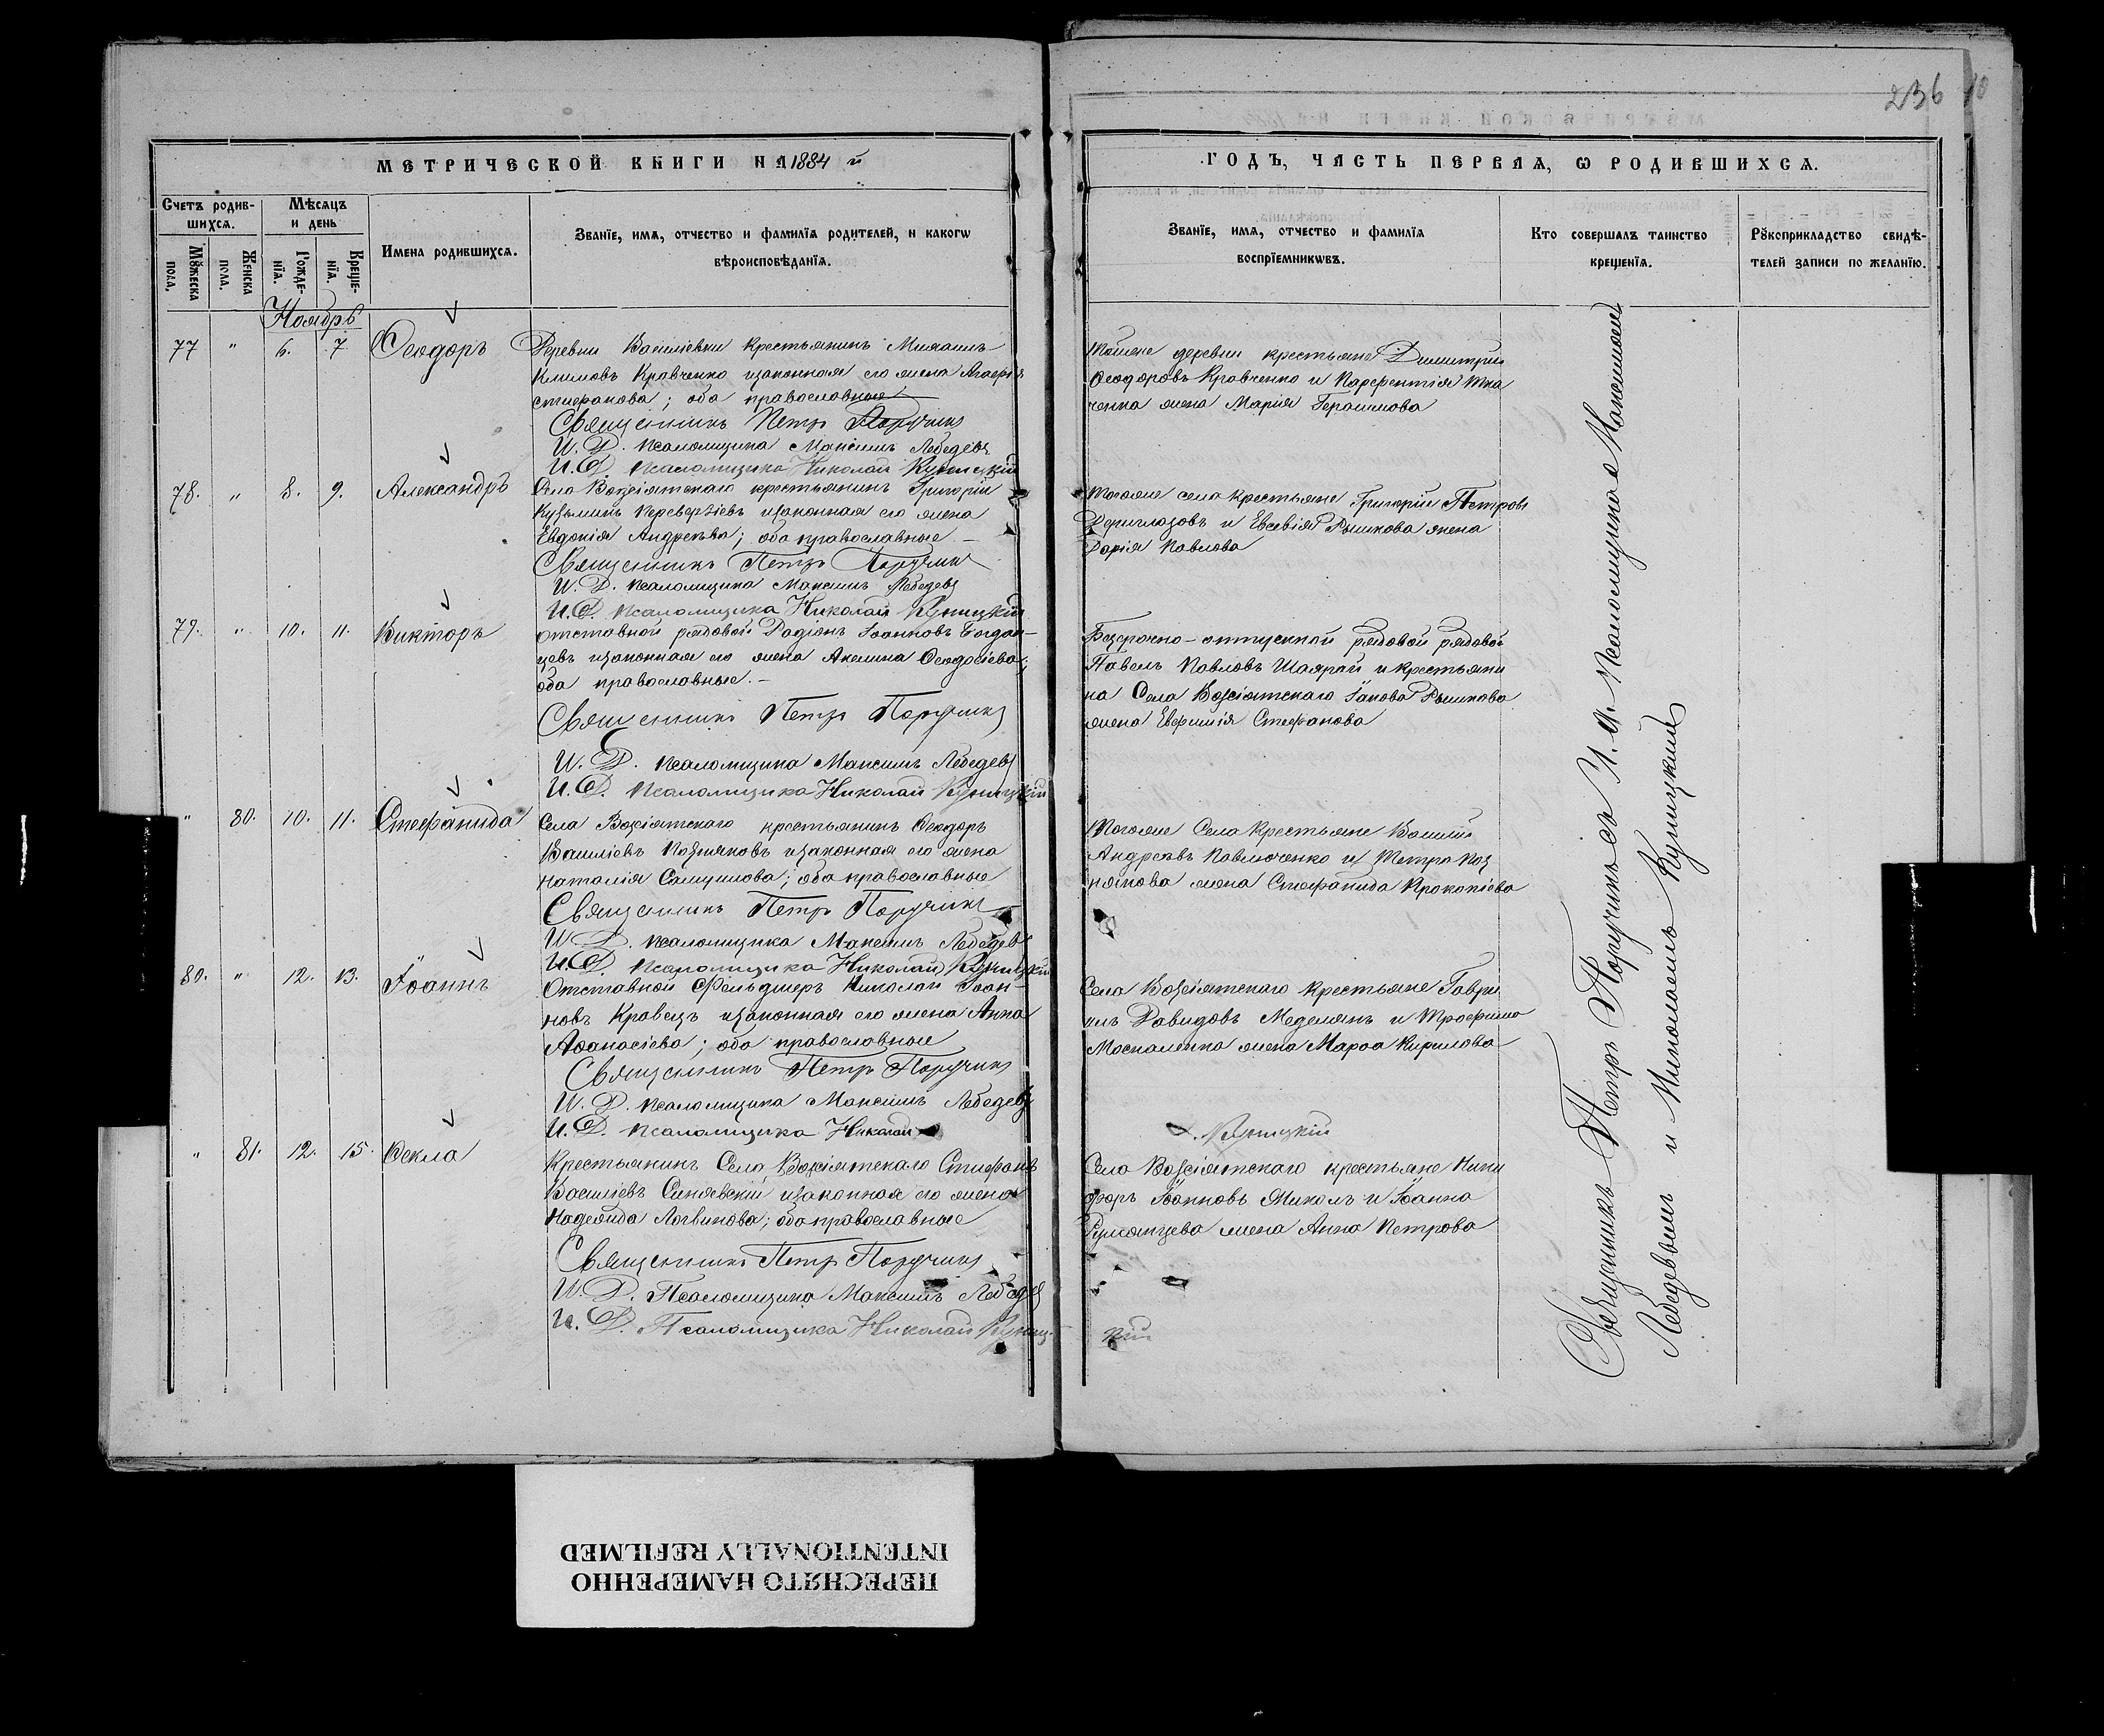 236 10
МЕТРИЧЕСКОЙ КНИГИ НА 1884 й
ГОДЪ, ЧАСТЬ ПЕРВАЯ, Ѡ РОДИВШИХСѦ.
Счетъ родив-
шихсѧ.
Мꙋжеска
пола.
Женска
пола.
Мѣсѧцъ
и день
Рожде-
нїѧ.
Креще-
нїѧ.
Имена родившихсѧ.
Званїе, имѧ, отчество и фамилїѧ родителей, и какогѡ
вѣроисповѣданїѧ.
Званїе, имѧ, отчество и фамилїѧ
воспрїемникѡвъ.
Кто совершалъ таинство
крещенїѧ.
Рꙋкоприкладство свидѣ-
телей записи по желанїю.
Ноябрь
77 " 6. 7 Ѳеодоръ
Деревни Василіевки крестьянинъ Михаилъ
Климовъ Кравченко изаконная его жена Агафія
Стефанова; оба православные
Священникъ Петръ Поручикъ
И. Д. псаломщика Максимъ Лебедевъ
И. Д. псаломщика Николай Куницкій
Тойже деревни крестьяне Димитрій
Ѳеодоровъ Кравченко и Парфентія Тка
ченка жена Марія Герасимова
78. " 8. 9. Александръ
Села Возсіятскаго крестьянинъ Григорій
Кузьминъ Переверзіевъ изаконная его жена
Евдокія Андреева; оба православные. –
Священникъ Петръ Поручикъ
И. Д. псаломщика Максимъ Лебедевъ
И. Д. псаломщика Николай Куницкій
Тогоже села крестьяне Григорій Петровъ
Дериглазовъ и Евсевія Рышкова жена
Дарія Павлова
79. " 10. 11. Викторъ
Отставной рядовой Радіонъ Іоанновъ Богдан-
цевъ изаконная его жена Акелина Ѳеодосіева;
оба православные. –
Священникъ Петръ Поручикъ
И. Д. псаломщика Максимъ Лебедевъ
И. Д. псаломщика Николай Куницкій
Безсрочно-отпускной рядовой рядовой
Павелъ Павловъ Шаярай и крестьяни
на Села Возсіятскаго Іакова Рышкова
жена Евфимія Стефанова
" 80. 10. 11. Стефанида
Села Возсіятскаго крестьянинъ Ѳеодоръ
Василіевъ Позняковъ изаконная его жена
Наталія Самуилова; оба православные
Священникъ Петръ Поручикъ
И. Д. псаломщика Максимъ Лебедевъ
И. Д. псаломщика Николай Куницкій
Тогоже Села крестьяне Василій
Андреевъ Павлюченко и Петра Поз
някова жена Стефанида Прокопіева
80. " 12. 13. Іоаннъ
Отставной Фельдшеръ Николай Іоан-
новъ Кравецъ изаконная его жена Анна
Аѳанасіева; оба православные
Священникъ Петръ Поручикъ
И. Д. псаломщика Максимъ Лебедевъ
И. Д. псаломщика Николай Куницкій
Села Возсіятскаго крестьяне Гаври
илъ Давидовъ Меделянъ и Трофима
Москаленка жена Марѳа Кирилова
" 81. 12. 15. Ѳекла
Крестьянинъ Села Возсіятскаго Стефанъ
Василіевъ Синяевскій изаконная его жена
Надежда Логвинова; оба православные
Священникъ Петръ Поручикъ
И. Д. Псаломщика Максимъ Лебедев
И. Д. Псаломщика Николай Куниц-
кій
Села Возсіятскаго крестьяне Ники
форъ Іоанновъ Михолъ и Іоанна
Румянцева жена Анна Петрова
Священникъ Петръ Поручикъ съ И. д. Псаломщика Максимомъ
Лебедевымъ и Николаемъ Куницкимъ
ПЕРЕСНЯТО НАМЕРЕННО
INTENTIONALLY REFILMED